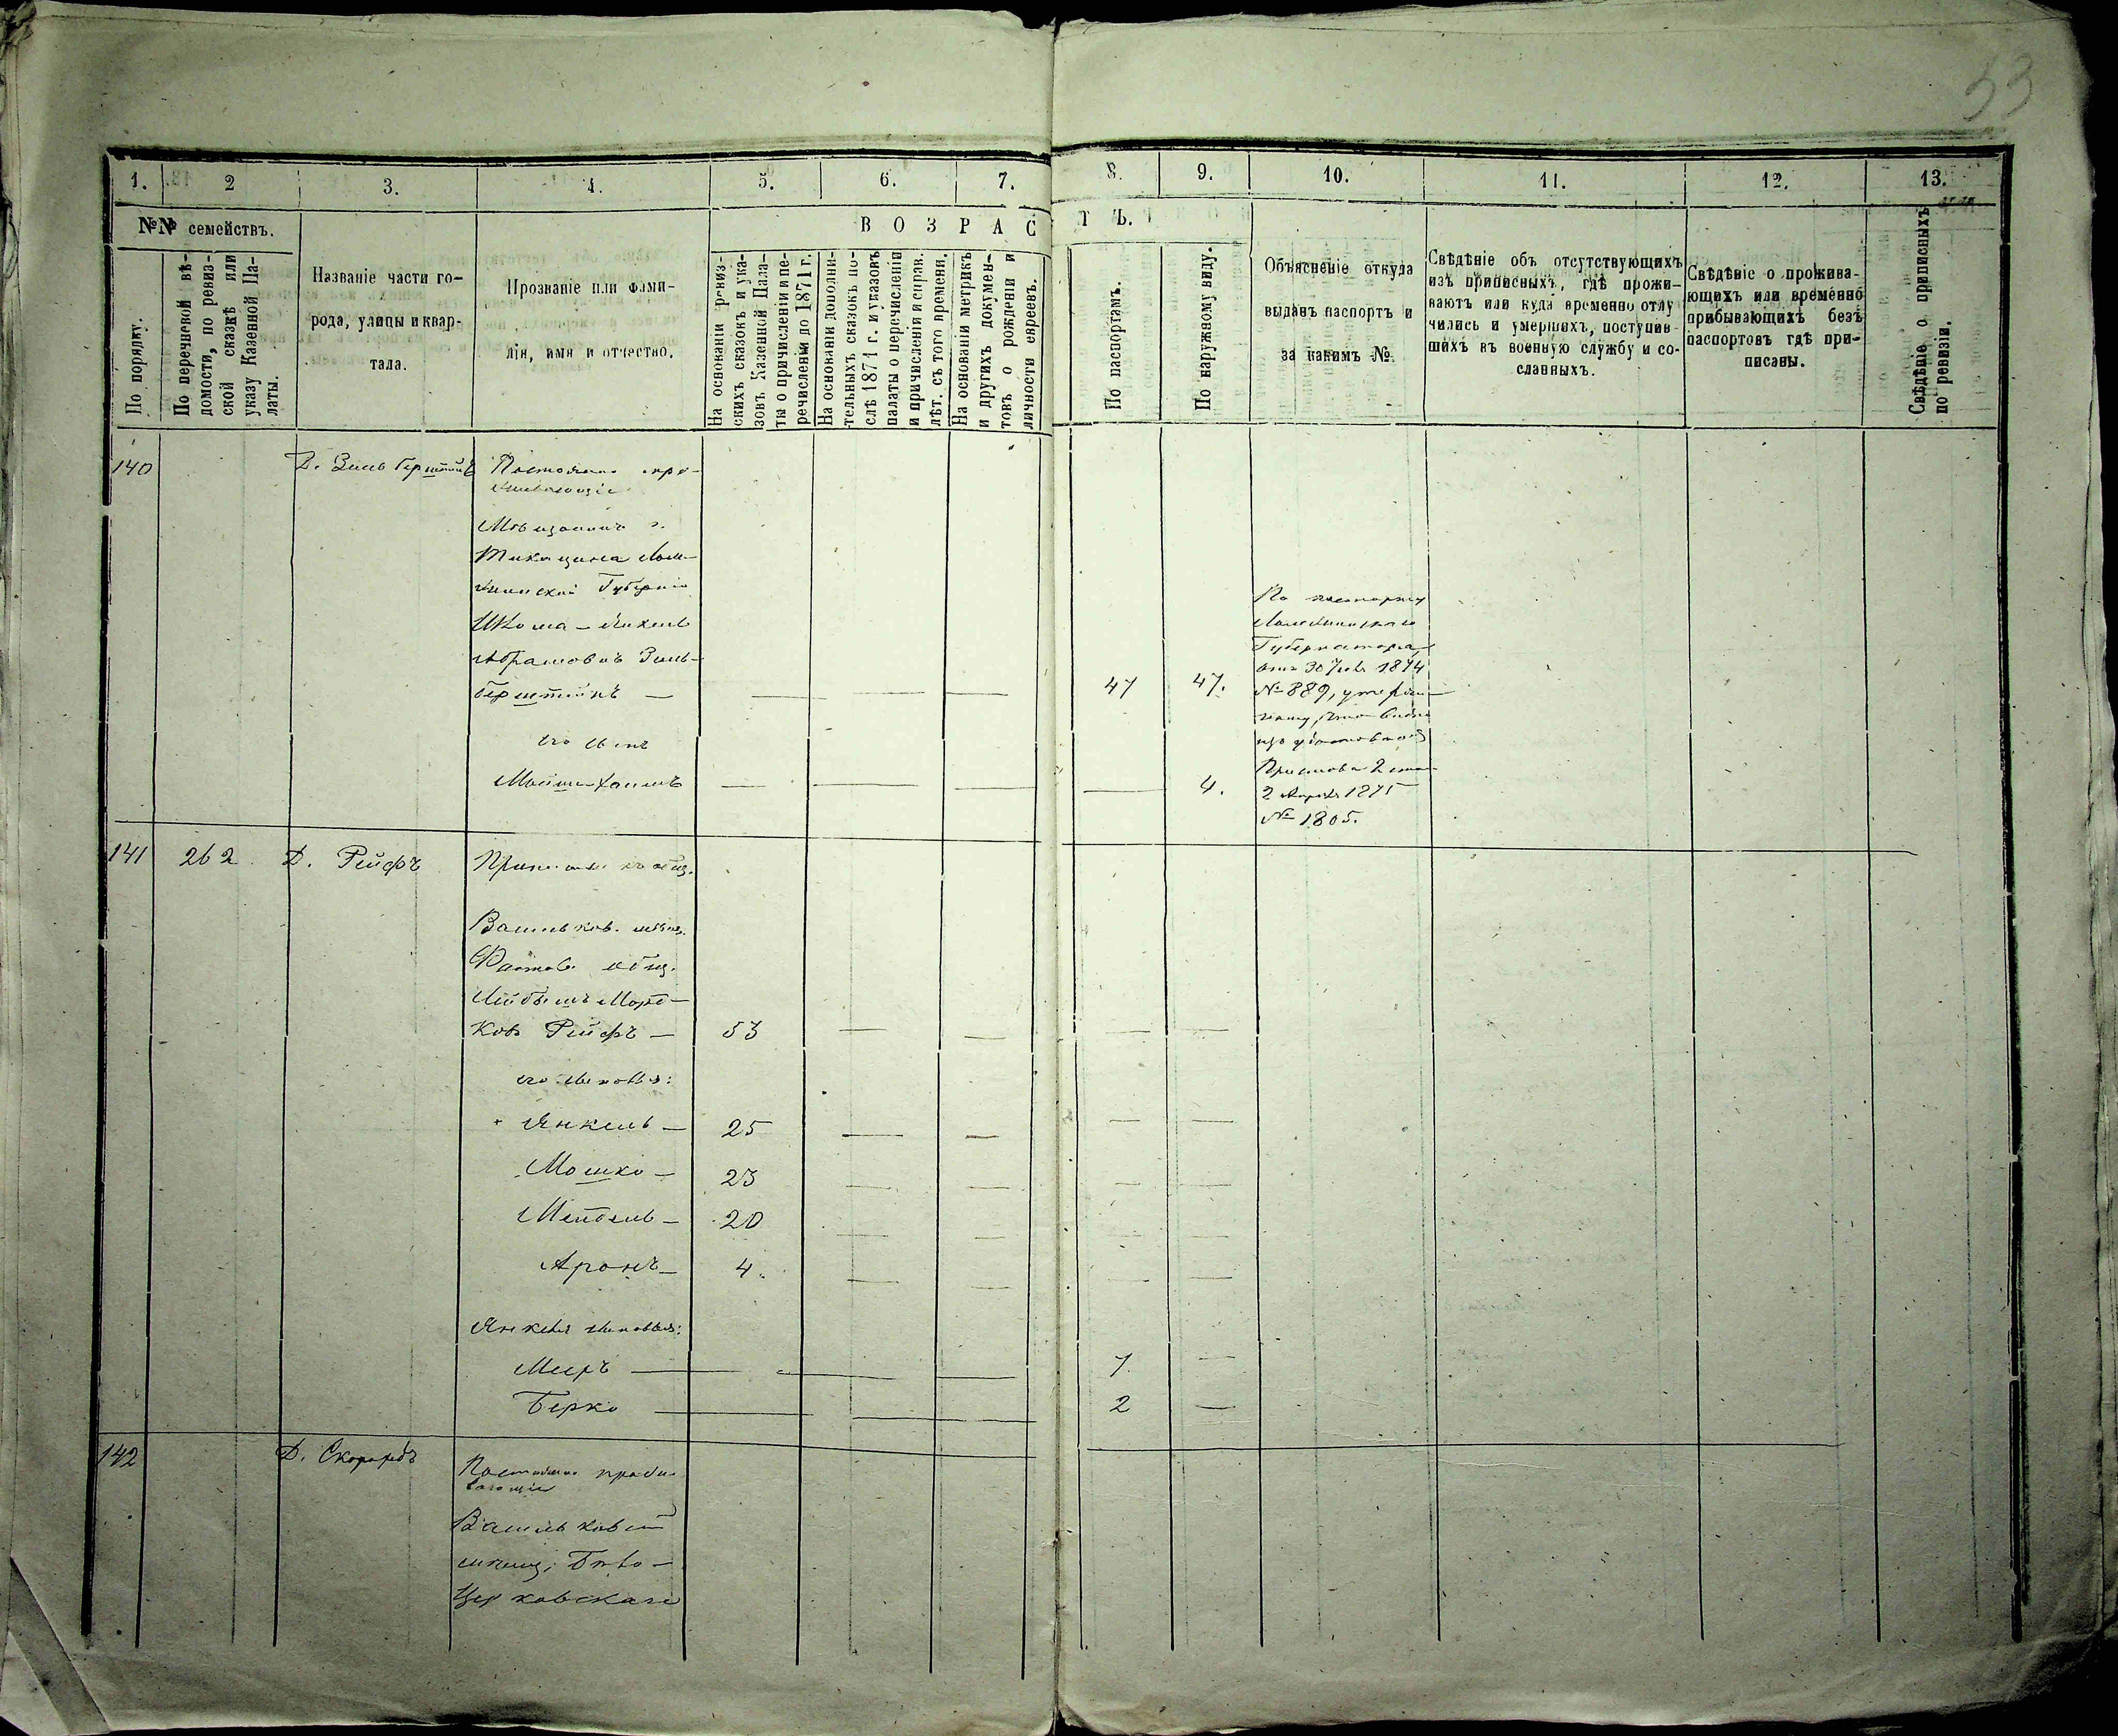 53
1. 2 3. 4. 5. 6. 7. 8. 9. 10. 11. 12. 13.
№№ семействъ.
В О З Р А С Т Ъ.
По порядку.
По перечневой вѣ-
домости, по ревиз-
ской сказкѣ или
указу Казенной Па-
латы.
Названіе части го-
рода, улицы и квар-
тала.
Прозваніе или фами-
лія, имя и отчество.
На основаніи ревиз-
скихъ сказокъ и ука-
зовъ Казенной Пала-
ты о причисленіи и пе-
речисленіи до 1871 г.
На основаніи дополни-
тельныхъ сказокъ по-
слѣ 1871 г. и указокъ
палаты о перечисленіи
и причисленіи и справ.
лѣт. съ того времени.
На основаніи метрикъ
и другихъ докумен-
товъ о рожденіи и
личности евреевъ.
По паспортамъ.
По наружному виду.
Объясненіе откуда
выданъ паспортъ и
за какимъ №.
Свѣдѣніе объ отсутствующихъ
изъ приписныхъ, гдѣ прожи-
ваютъ или куда временно отлу
чились и умершихъ, поступив-
шихъ въ военную службу и со-
сланныхъ.
Свѣдѣніе о прожива-
ющихъ или временно
прибывающихъ безъ
паспортовъ гдѣ при-
писаны.
Свѣдѣніе о приписныхъ
по ревизіи.
140 Д. Зильберштейнъ Постоянно про-
живающіе
Мѣщанинъ г.
Тикоцина Лом-
жинской Губерніи
Абрамовъ Зиль-
берштейнъ — — — — 47 47.
его сынъ
Мойше-Хаимъ — — — — 4.
По паспорту
Ломжинскаго
Губернатора
отъ 30 1874
№ 889,
Пристава 2
2 Апрѣля 1875
№ 1805.
141 262 Д. Рейфъ
Васильков. мѣщ.
Фастов. общ.
Лейбишъ Морд-
ковъ Рейфъ — 53 — — — —
его сыновья:
Янкель — 25 — — — —
Мошко — 23 — — — —
Мендель — 20 — — — —
Аронъ — 4. — — — —
Янкеля сыновья:
Мееръ — — — 7 —
Берко — — — 2 —
142 Постоянно прожи-
вающіе
Васильковскій
мѣщ. Бѣло-
Церковскаго